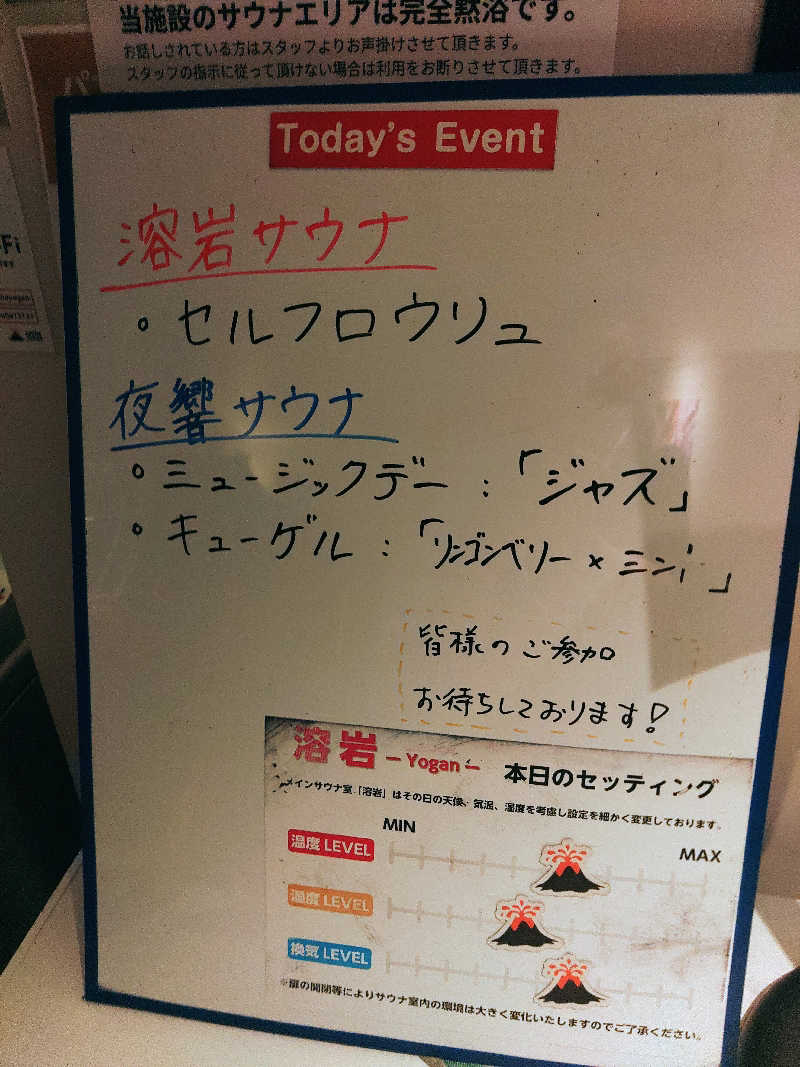 当施設のサウナエリアは完全黙浴です。
お話しされている方はスタッフよりお声掛けさせて頂きます。
スタッフの指示に従って頂けない場合は利用をお断りさせて頂きます。
パ
Fi
Today's Event
溶岩サウナ
・セルフロウリュ
夜響サウナ
・ミュージックデー:「ジャズ」
・キューゲル:「リンゴンベリー×ミント」
皆様のご参加
お待ちしております!
溶岩 -Yogan- 本日のセッティング
メインサウナ室「溶岩」はその日の天候、気温、湿度を考慮し設定を細かく変更しております。
MIN
MAX
温度 LEVEL
湿度 LEVEL
換気 LEVEL
※扉の開閉等によりサウナ室内の環境は大きく変化いたしますのでご了承ください。